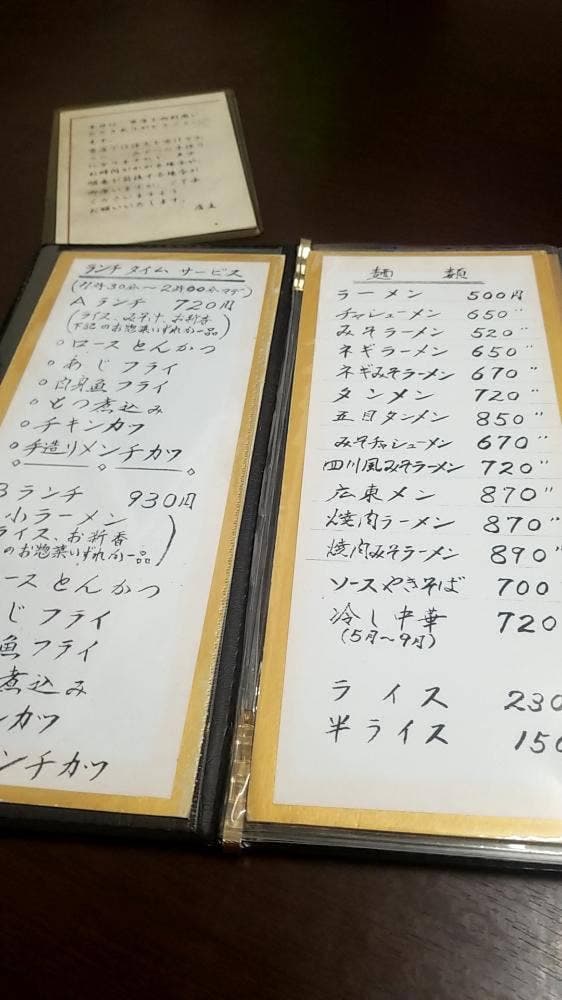 店主
ランチタイム サービス
(11時30分〜2時00分マデ)
Aランチ 720円
(ライス、みそ汁、お新香
下記のお惣菜いずれか一品)
○ロースとんかつ
○あじフライ
○白身魚フライ
○もつ煮込み
○チキンカツ
○手造りメンチカツ
Bランチ 930円
小ラーメン
ライス、お新香
のお惣菜いずれか一品)
ースとんかつ
じフライ
魚フライ
煮込み
ンカツ
ンチカツ
麺類
ラーメン 500円
チャシューメン 650〃
みそラーメン 520〃
ネギラーメン 650〃
ネギみそラーメン 670〃
タンメン 720〃
五目タンメン 850〃
みそチャシューメン 670〃
四川風みそラーメン 720〃
広東メン 870〃
焼肉ラーメン 870〃
焼肉みそラーメン 890〃
ソースやきそば 700
冷し中華 720
(5月〜9月)
ライス 230
半ライス 150